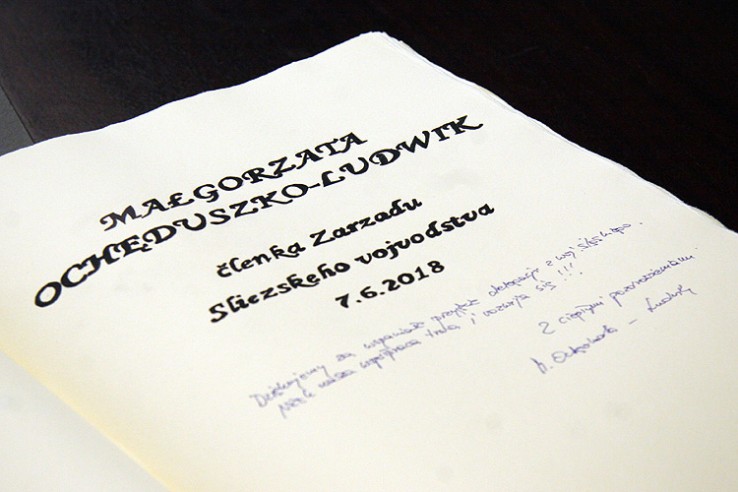 MAŁGORZATA
OCHĘDUSZKO-LUDWIK
členka Zarzadu
Sliezskęho vojvodstva
7.6.2018
Dziękujemy za wspaniałe przyjęcie delegacji z woj. śląskiego.
Niech nasza współpraca trwa i rozwija się !!!
Z ciepłymi pozdrowieniami
M. Ochęduszko - Ludwik